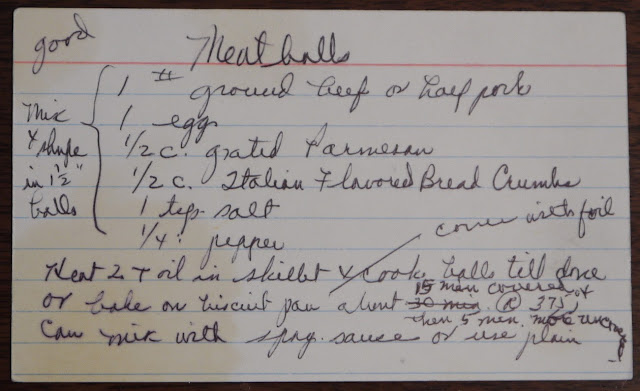 good
Meatballs
Mix
& shape
in 1 1/2"
balls
1 # ground beef or half pork
1 egg
1/2 c. grated Parmesan
1/2 c. Italian Flavored Bread Crumbs
1 tsp. salt
1/4 : pepper
cover with foil
Heat 2 T oil in skillet & cook balls till done
or bake on biscuit pan about 30 min. @ 375°
15 min covered
then 5 min. more uncovered
Can mix with spag. sauce or use plain